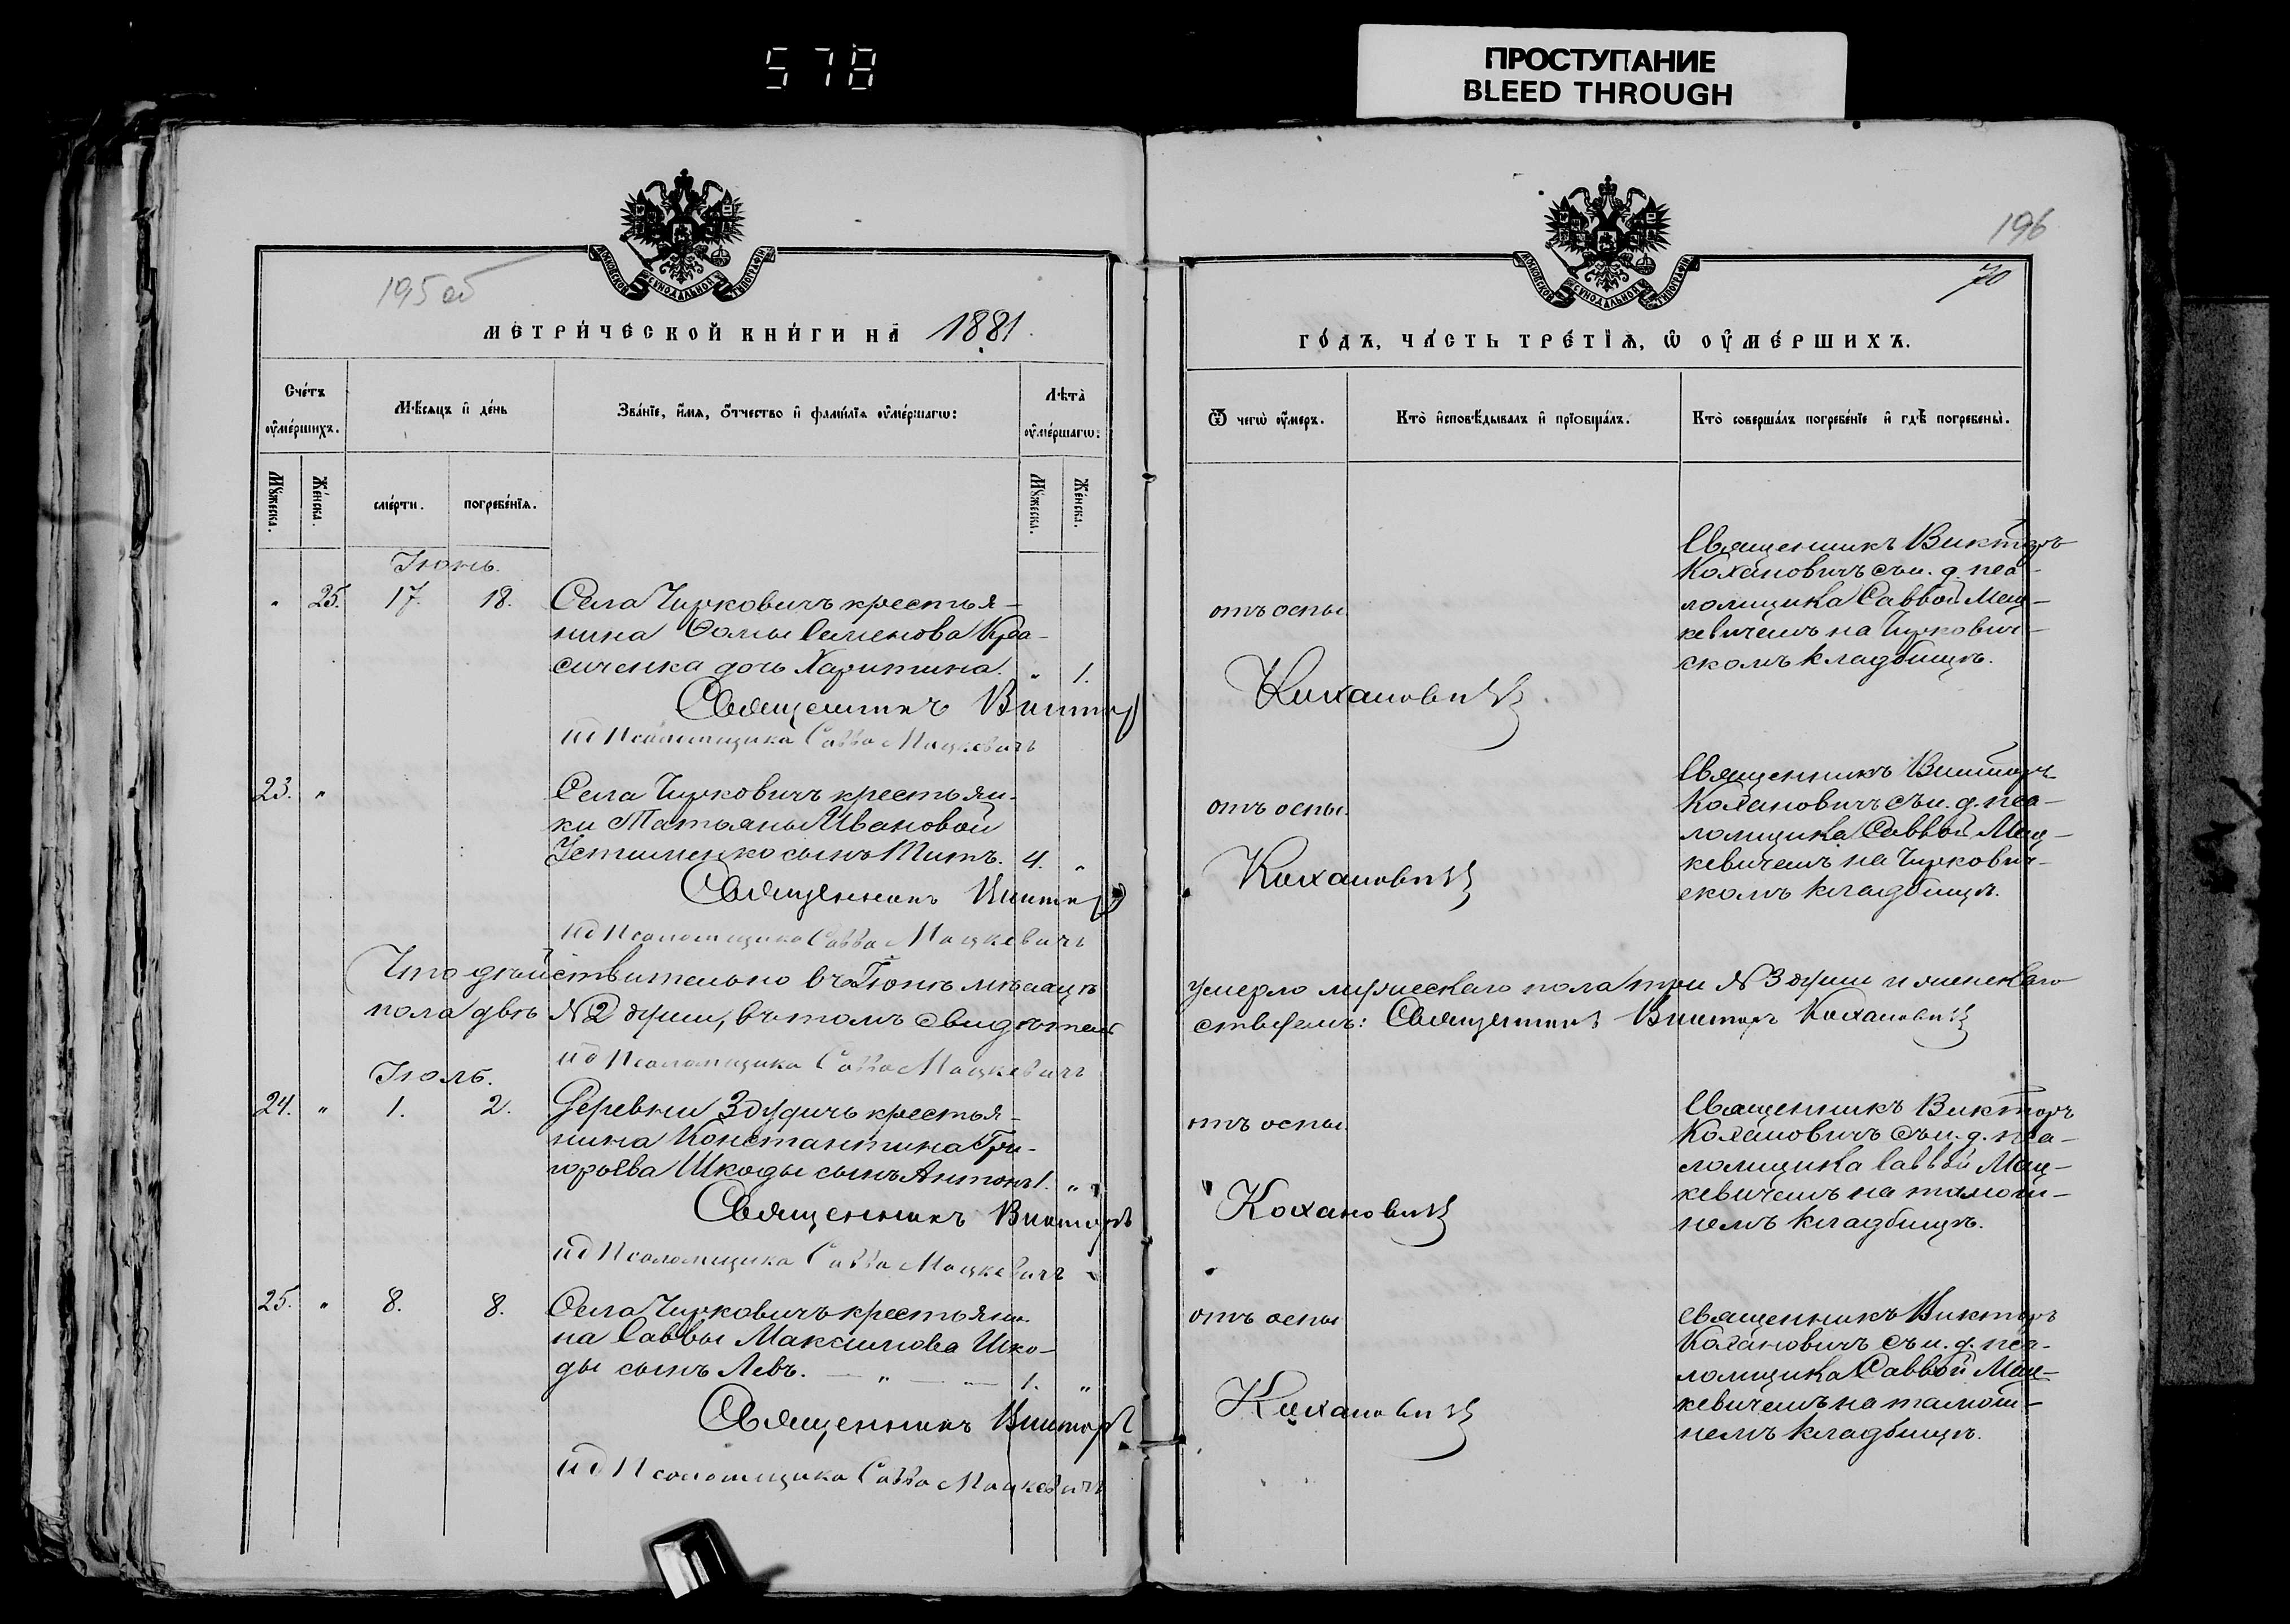 578
ПРОСТУПАНИЕ
BLEED THROUGH
195 об
МОСКОВСКОЙ СѴНОДАЛЬНОЙ ТИПОГРАФІИ
МЕТРИ́ЧЕСКОЙ КНИ́ГИ НА̀ 1881.
Сче́тъ оу҆ме́ршихъ.
Мѣ́сѧцъ и҆ де́нь
Зва́нїе, и҆́мѧ, ѻ҆́тчество и҆ фами́лїѧ оу҆ме́ршагѡ:
Лѣта̀ оу҆ме́ршагѡ:
Мꙋ́жеска.
Же́нска.
сме́рти.
погребе́нїѧ.
Мꙋ́жеска.
Же́нска.
Іюнь.
" 25. 17. 18. Села Чирковичъ крестья-
нина Ѳомы Семенова Кра-
сиченка дочь Харитина. " 1.
Священникъ Викторъ
ид Псаломщика Савва Мацкевичъ
23. " Села Чирковичъ крестьян-
ки Татьяны Ивановой
Устименко сынъ Титъ. 4. "
Священникъ Викторъ
ид Псаломщика Савва Мацкевичъ
Что дѣйствительно въ Іюнѣ мѣсяцѣ
пола двѣ №2 души, въ томъ свидѣтель
ид Псаломщика Савва Мацкевичъ
Іюль.
24. " 1. 2. Деревни Здудичь крестья-
нина Константина Гри-
горьева Шкоды сынъ Антонъ 1. "
Священникъ Викторъ
ид Псаломщика Савва Мацкевичъ
25. " 8. 8. Села Чирковичъ крестьяни-
на Саввы Максимова Шко-
ды сынъ Левъ. — " — " — 1. "
Священникъ Викторъ
ид Псаломщика Савва Мацкевичъ
196
70
МОСКОВСКОЙ СѴНОДАЛЬНОЙ ТИПОГРАФІИ
ГО́ДЪ, ЧА́СТЬ ТРЕ́ТЇѦ, Ѡ҆ ОУ҆МЕ́РШИХЪ.
Ѿ чегѡ̀ оу҆́меръ.
Кто̀ и҆сповѣ́дывалъ и҆ прїѡбща́лъ.
Кто̀ соверша́лъ погребе́нїе и҆ гдѣ̀ погребены̀.
отъ оспы.
Священникъ Викторъ
Кохановичъ съ и. д. пса-
ломщика Саввой Мац-
кевичемъ на Чиркович-
скомъ кладбищѣ.
Кохановичъ
отъ оспы.
Священникъ Викторъ
Кохановичъ съ и. д. пса-
ломщика Саввой Мац-
кевичемъ на Чиркович-
скомъ кладбищѣ.
Кохановичъ
умерло мужескаго пола три №3 души и женскаго
ствуемъ: Священникъ Викторъ Кохановичъ
отъ оспы.
Священникъ Викторъ
Кохановичъ съ и. д. пса-
ломщика Саввой Мац-
кевичемъ на тамош-
немъ кладбищѣ.
Кохановичъ
отъ оспы
Священникъ Викторъ
Кохановичъ съ и. д. пса-
ломщика Саввой Мац-
кевичемъ на тамош-
немъ кладбищѣ.
Кохановичъ